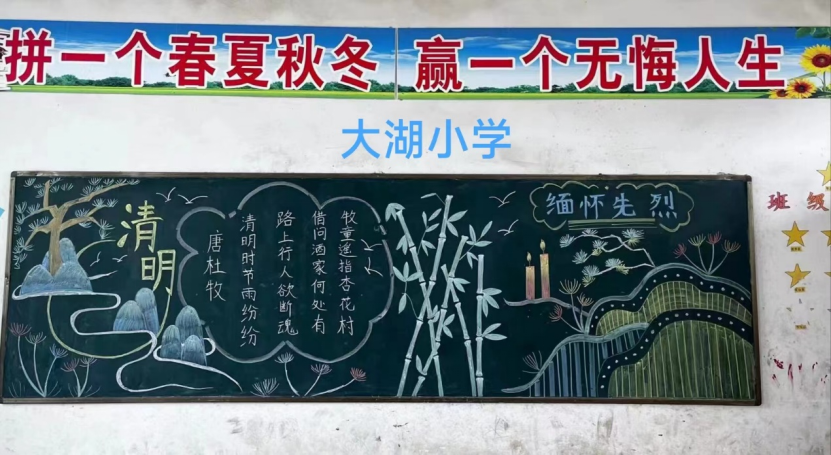 拼一个春夏秋冬 赢一个无悔人生
大湖小学
清明
唐杜牧
清明时节雨纷纷
路上行人欲断魂
借问酒家何处有
牧童遥指杏花村
缅怀先烈
班级